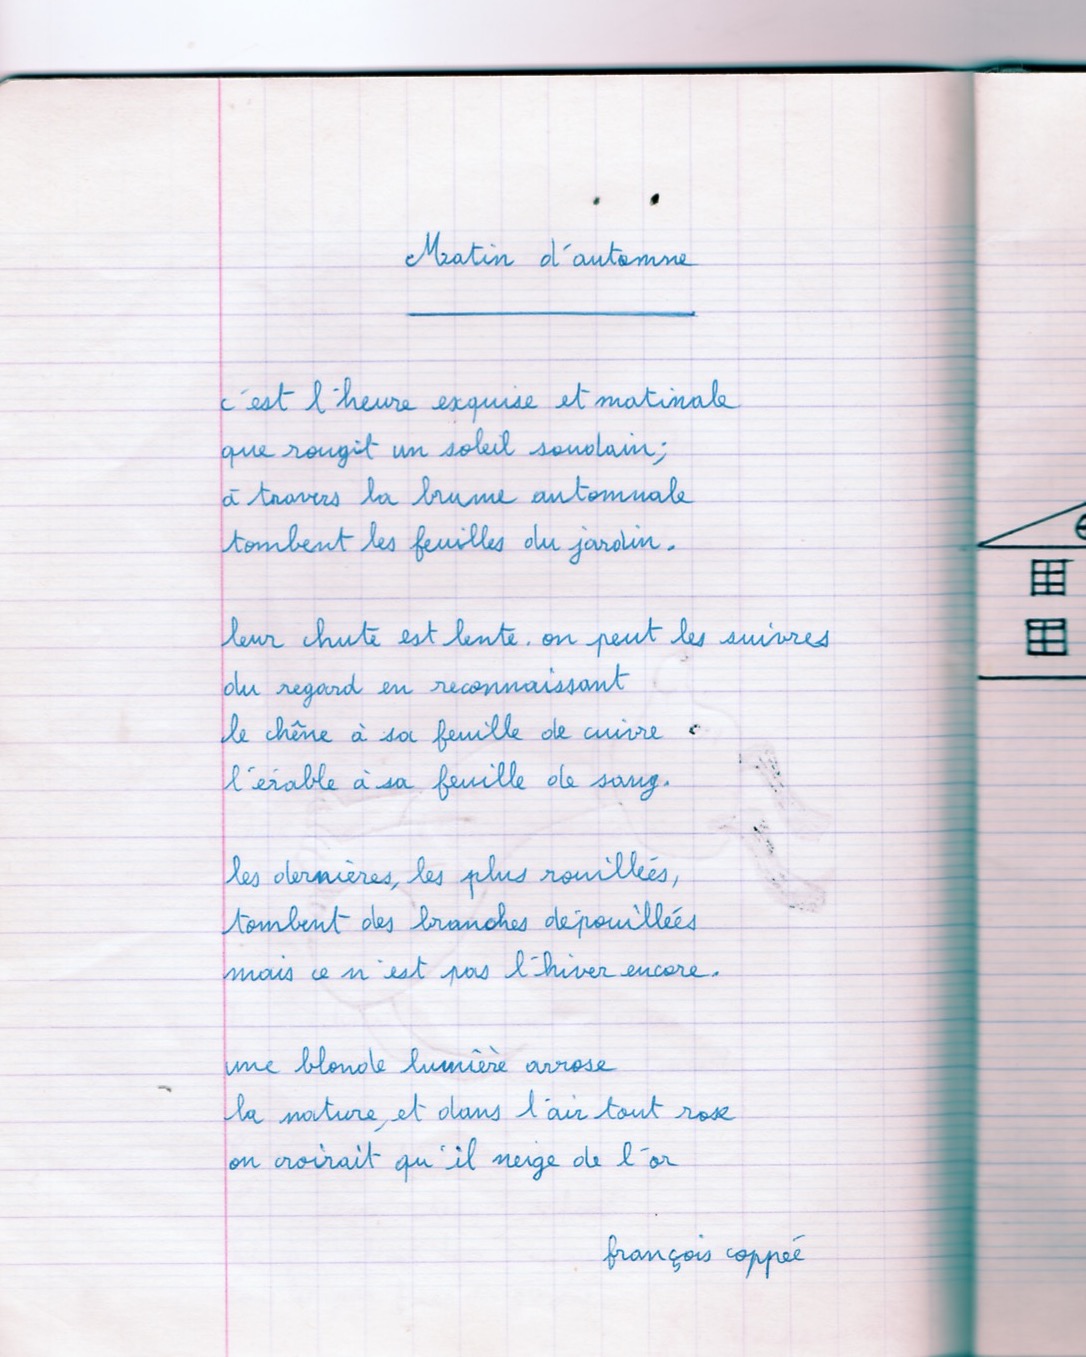 Matin d'automne
c'est l'heure exquise et matinale
que rougit un soleil soudain;
à travers la brume automnale
tombent les feuilles du jardin.
leur chute est lente. on peut les suivres
du regard en reconnaissant
le chêne à sa feuille de cuivre
l'érable à sa feuille de sang.
les dernières, les plus rouillées,
tombent des branches dépouillées
mais ce n'est pas l'hiver encore.
une blonde lumière arrose
la nature, et dans l'air tout rose
on croirait qu'il neige de l'or
françois coppée